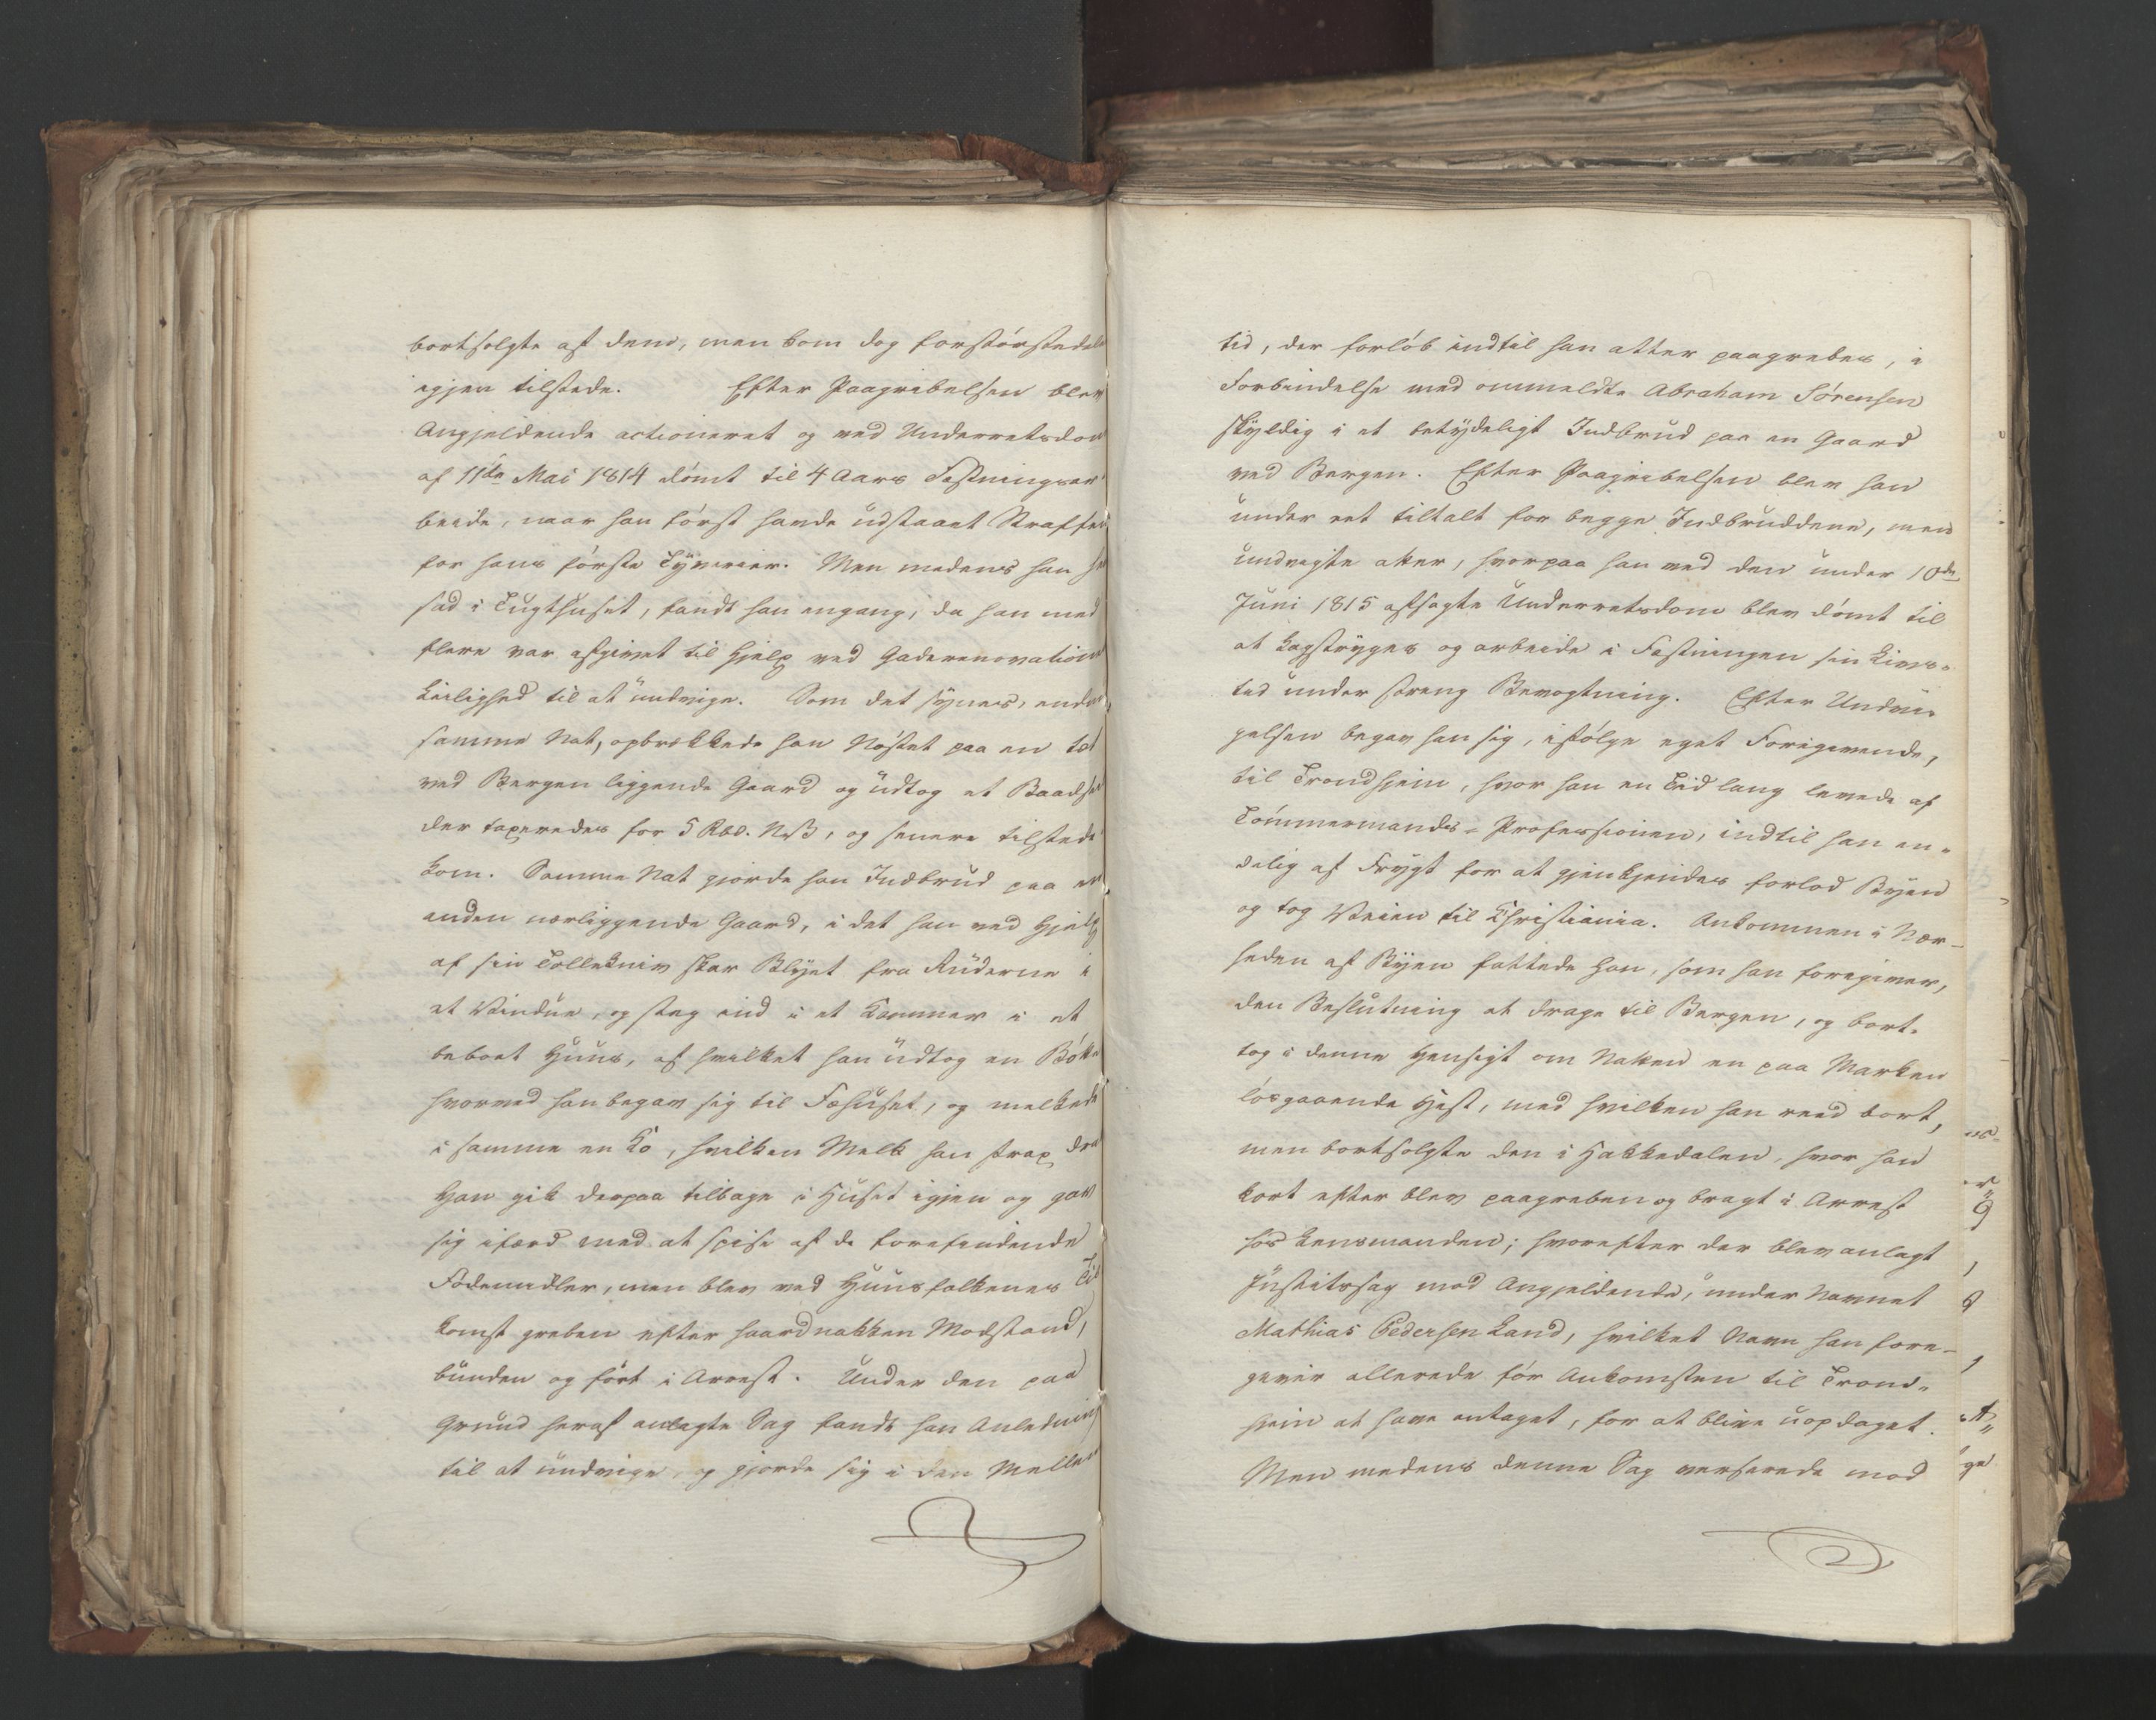 bortsolgte af dem, men kom dog forstørstedelen
igjen tilstede. Efter Paagribelsen blev
Angjeldende actioneret og ved Underretsdom
af 11te Mai 1814 dømt til 4 Aars Fæstningsar-
beide, naar han først havde udstaaet Straffen
for hans første Tyverier. Men medens han
sad i Tugthuset, fandt han engang, da han med
flere var afgivet til Hjelp ved Gaderenovationen
Leilighed til at undvige. Som det synes, endnu
samme Nat, opbrækkede han Nøstet paa en tæt
ved Bergen liggende Gaard og udtog et Baadseil
der taxeredes for 5 Rbd. N.V., og senere tilstede
kom. Samme Nat gjorde han Indbrud paa en
anden nærliggende Gaard, i det han ved Hjelp
af sin Tollekniv skar Blyet fra Ruderne i
et Vindue, og steg ind i et Kammer i et
beboet Huus, af hvilket han udtog en Bøtte
hvormed han begav sig til Fæhuset, og melkede
i samme en Ko, hvilken Melk han strax drak
Han gik derpaa tilbage i Huset igjen og gav
sig ifærd med at spise af de forefundende
Fødemidler, men blev ved Huusfolkenes Til
komst greben efter haardnakken Modstand,
bunden og ført i Arrest. Under den paa
Grund heraf anlagte Sag fandt han Anledning
til at undvige, og gjorde sig i den Mellem
tid, der forløb indtil han atter paagrebes, i
Forbindelse med ommeldte Abraham Sørensen
skyldig i et betydeligt Indbrud paa en Gaard
ved Bergen. Efter Paagribelsen blev han
under eet tiltalt for begge Indbruddene, men
undvigte atter, hvorpaa han ved den under 10de
Juni 1815 afsagte Underretsdom blev dømt til
at kagstryges og arbeide i Fæstningen sin Livs-
tid under streng Bevogtning. Efter Undvi-
gelsen begav han sig, ifølge eget Foregivende,
til Trondhjem, hvor han en Tid lang levede af
Tømmermands-Professionen, indtil han en-
delig af Frygt for at gjenkjendes forlod Byen
og tog Veien til Christiania. Ankommen i Nær-
heden af Byen fattede han, som han foregiver,
den Beslutning at drage til Bergen, og bort-
tog i denne Hensigt om Natten en paa Marken
løsgaaende Hest, med hvilken han reed bort,
men bortsolgte den i Hakkedalen, hvor han
kort efter blev paagreben og bragt i Arrest
hos Lensmanden; hvorefter der blev anlagt
Justitssag mod Angjeldende, under Navnet
Mathias Pedersen Land, hvilket Navn han fore-
giver allerede før Ankomsten til Trond-
hjem at have antaget, for at blive uopdaget.
Men medens denne Sag verserede mod